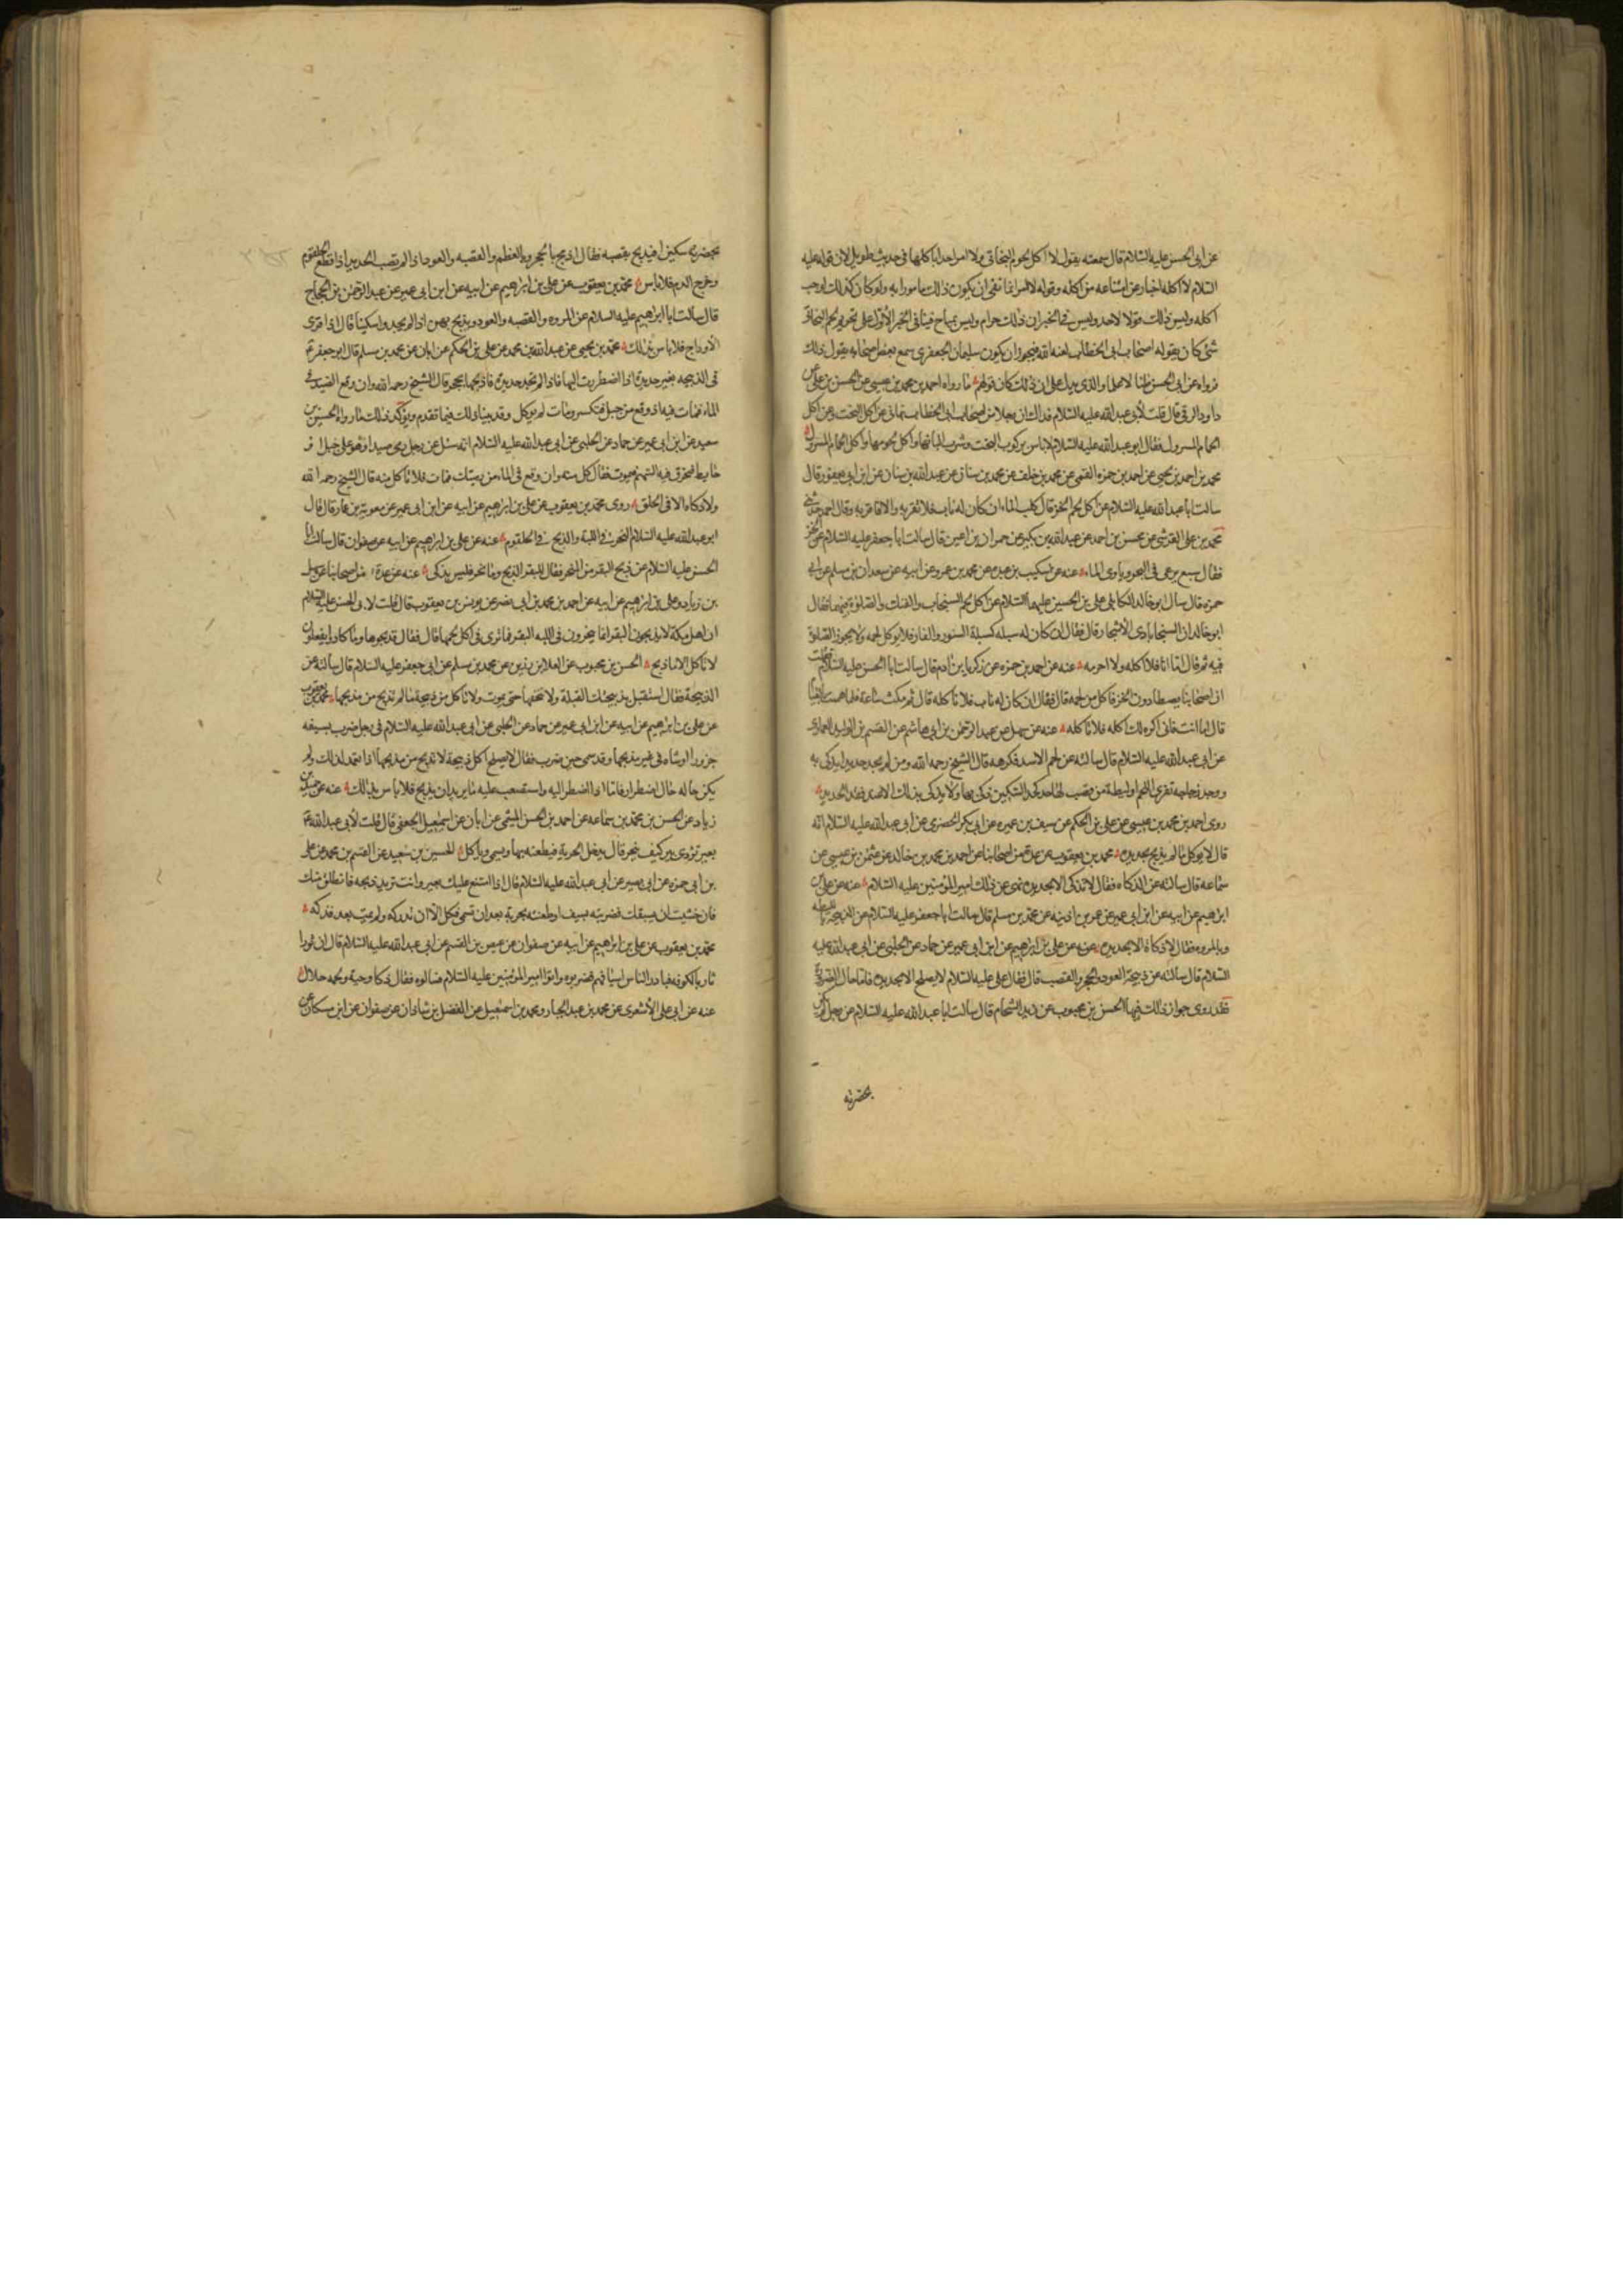 عن ابى الحسن عليه السلام قال سمعته يقول لا اكل لحوم البخاتى ولا امر احدا باكلها فى حديث طويل لان قوله عليه
السلام لا اكله اخبار عن امتناعه من اكله وقوله لا امر انما نفى ان يكون ذلك مامورا به ولو كان كذلك لوجب
اكله وليس ذلك قولا لاحد وليس فى الخبر ان ذلك حرام وليس بمباح فينافى الخبر الاول على تحريم لحم البخاتى
شئ كان يقوله اصحاب ابى الخطاب لعنه الله فيجوز ان يكون سليمان الجعفرى سمع بعض اصحابه يقول ذلك
فرواه عن ابى الحسن والذى يدل على ان ذلك كان قولهم ما رواه احمد بن محمد بن عيسى عن الحسن بن على عن
داود الرقى قال قلت لابى عبد الله عليه السلام فداك ان رجلا من اصحاب ابى الخطاب نهانى عن اكل البخت وعن اكل
الحمام المسرول فقال ابو عبد الله عليه السلام لا باس بركوب البخت وشرب البانها واكل لحومها واكل الحمام المسرول
محمد بن احمد بن يحيى عن احمد بن حمزه القمى عن محمد بن خلف عن محمد بن سنان عن عبد الله بن سنان عن ابن ابى يعفور قال
سالت ابا عبد الله عليه السلام عن اكل لحم الخز قال كلب الماء ان كان له ناب فلا تقربه والا فاقربه وقال احمد حدثنى
محمد بن على القرشى عن محسن بن احمد عن عبد الله بن بكير عن حمران بن اعين قال سالت ابا جعفر عليه السلام عن الخز
فقال سبع يرعى فى البحر وياوى الماء عنه عن بن عبده عن محمد بن عمرو عن ابيه عن سعدان بن مسلم عن ابى
حمزه قال سال ابو خالد الكابلى على بن الحسين عليهما السلام عن اكل لحم السنجاب والفنك والصلوة فيهما فقال
ابو خالد ان السنجاب ياوى الاشجار قال فقال ان كان له سبله كسبلة السنور والفار فلا يوكل لحمه ولا يجوز الصلوة
فيه ثم قال اما انا فلا اكله ولا احرمه عنه عن احمد بن حمزه عن زكريا بن ادم قال سالت ابا الحسن عليه السلام فقلت
ان اصحابنا يصطادون الخز فاكل من لحمه قال فقال ان كان له ناب فلا تاكله قال ثم مكث ساعة فلما هممت بالقيام
قال اما انت فانى اكره لك اكله فلا تاكله عنه عن سهل عن عبد الرحمن بن ابى هاشم عن القسم بن الوليد العمارى
عن ابى عبد الله عليه السلام قال سالته عن لحم الاسد فكرهه قال الشيخ رحمه الله ومن لم يجد حديدا يذكى به
ووجد زجاجه تفرى اللحم او ليطة من قصب لها حد كحد السكين ذكى بها ولا يذكى بذلك الا عند فقد الحديد
روى احمد بن محمد بن عيسى عن على بن الحكم عن سيف بن عميره عن ابى بكر الحضرمى عن ابى عبد الله عليه السلام انه
قال لا يوكل ما لم يذبح بحديده محمد بن يعقوب عن عدة من اصحابنا عن احمد بن محمد بن خالد عن عثمن بن عيسى عن
سماعه قال سالته عن الذكاه فقال لا تذكى الا بحديده نهى عن ذلك امير المؤمنين عليه السلام عنه عن على بن
ابرهيم عن ابيه عن ابن ابى عمير عن عمر بن اذينه عن محمد بن مسلم قال سالت ابا جعفر عليه السلام عن الذبيحة بالليطه
وبالمروه فقال لا ذكاة الا بحديده عنه عن على بن ابرهيم عن ابيه عن ابن ابى عمير عن حماد عن الحلبى عن ابى عبد الله عليه
السلام قال سالته عن ذبيحة العود والحجر والقصب قال فقال على عليه السلام لا يصلح الا بحديده فاما حال الضرورة
فقد روى جواز ذلك فيها الحسن بن محبوب عن زيد الشحام قال سالت ابا عبد الله عليه السلام عن رجل لم يكن
بحضرته
بحضرته سكين افيذبح بقصبه فقال اذبح بالحجر وبالعظم والقصبه والعود اذا لم تصب الحديد اذا قطع الحلقوم
وخرج الدم فلا باس محمد بن يعقوب عن على بن ابرهيم عن ابيه عن ابن ابى عمير عن عبد الرحمن بن الحجاج
قال سالت ابا ابراهيم عليه السلام عن المروه والقصبه والعود ويذبح بهن اذا لم يجدوا سكينا قال اذا فرى
الاوداج فلا باس بذلك محمد بن يحيى عن عبد الله بن محمد عن على بن الحكم عن ابان عن محمد بن مسلم قال ابو جعفر عم
فى الذبيحه بغير حديدة اذا اضطررت اليها فاذا لم تجد حديدة فاذبحها بحجر قال الشيخ رحمه الله وان وقع الصيد فى
الماء فمات فيه او وقع من جبل فتكسر ومات لم يوكل وقد بينا ذلك فيما تقدم ويؤكد ذلك ما رواه الحسين بن
سعيد عن ابن ابى عمير عن حماد عن الحلبى عن ابى عبد الله عليه السلام انه سئل عن رجل رمى صيدا وهو على جبل او
حايط فيخرق فيه السهم فيموت فقال كل منه وان وقع فى الماء من رميتك فمات فلا تاكل منه قال الشيخ رحمه الله
ولا ذكاه الا فى الحلق روى محمد بن يعقوب عن على بن ابراهيم عن ابيه عن ابن ابى عمير عن معوية بن عمار قال قال
ابو عبد الله عليه السلام النحر فى اللبة والذبح فى الحلقوم عنه عن على بن ابرهيم عن ابيه عن صفوان قال سالت ابا
الحسن عليه السلام عن ذبح البقر من المنحر فقال للبقر الذبح وما نحر فليس بذكى عنه عن عدة من اصحابنا عن سهل
بن زياد وعلى بن ابرهيم عن ابيه عن احمد بن محمد بن ابى نصر عن يونس بن يعقوب قال قلت لابى الحسن عليه السلام
ان اهل مكة لا يذبحون البقر انما ينحرون فى اللبه البقر فما ترى فى اكل لحمها قال فقال فذبحوها وما كادوا يفعلون
لا تاكل الا ما ذبح الحسن بن محبوب عن العلا بن رزين عن محمد بن مسلم عن ابى جعفر عليه السلام قال سالته عن
الذبيحة فقال استقبل بذبيحتك القبلة ولا تنخعها حتى يموت ولا تاكل من ذبيحة ما لم تذبح من مذبحها محمد بن يعقوب
عن على بن ابراهيم عن ابيه عن ابن ابى عمير عن حماد عن الحلبى عن ابى عبد الله عليه السلام فى رجل ضرب بسيفه
جزورا او شاه فى غير مذبحها وقد سمى حين ضرب فقال لا يصلح اكل ذبيحة لا تذبح من مذبحها اذا تعمد لذلك ولم
يكن حاله حال اضطرار فاما اذا اضطر اليه واستصعب عليه ما يريد ان يذبح فلا باس بذلك عنه عن حميد بن
زياد عن الحسن بن محمد بن سماعه عن احمد بن الحسن الميثمى عن ابان عن اسمعيل الجعفى قال قلت لابى عبد الله عم
بعير تردى فى بير كيف ينحر قال يدخل الحربة فيطعنه بها ويسمى وياكل الحسين بن سعيد عن القسم بن محمد عن على
بن ابى حمزه عن ابى بصير عن ابى عبد الله عليه السلام قال اذا امتنع عليك بعير وانت تريد ذبحه فانطلق منك
فان خشيت ان يسبقك فضربته بسيف او طعنته بحربة بعد ان تسمى فكل الا ان تدركه ولم يمت بعد فذكه
محمد بن يعقوب عن على بن ابرهيم عن ابيه عن صفوان عن عيص بن القسم عن ابى عبد الله عليه السلام قال ان ثورا
ثار بالكوفه فبادر الناس اسيافهم فضربوه واتوا امير المؤمنين عليه السلام فسالوه فقال ذكاة وحية ولحمه حلال
عنه عن ابى على الاشعرى عن محمد بن عبد الجبار ومحمد بن اسمعيل عن الفضل بن شاذان عن صفوان عن ابن مسكان عن